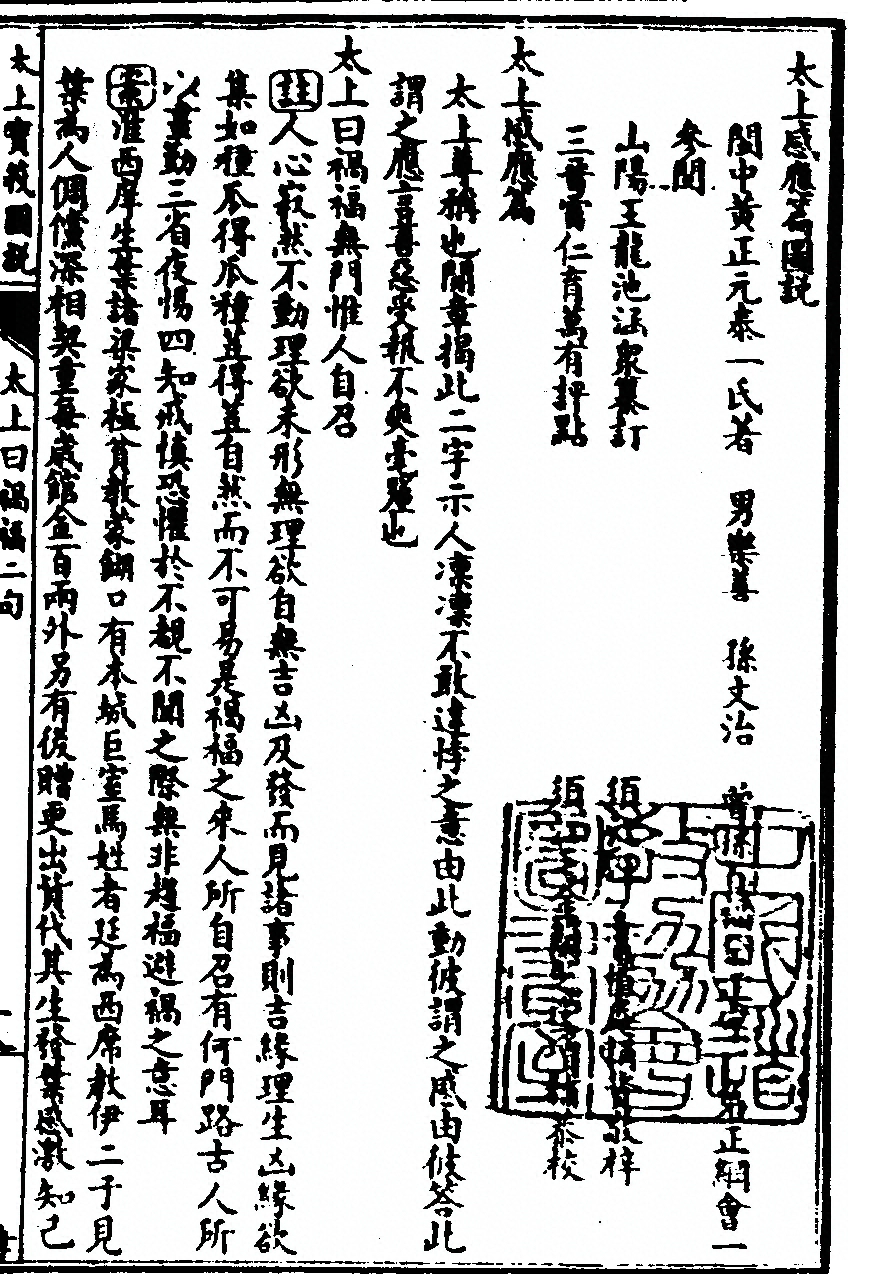 太上感應篇圖説
閩中黃正元泰一氏著　男樂善　孫文治　弟正綱會一
參閱
山陽王龍池涵眾纂訂
敬梓
三晉雷仁育萬有評點
恭校
太上感應篇
太上尊稱也開章揭此二字示人凜凜不敢違悖之意由此動彼謂之感由彼答此
謂之應言善惡受報不爽毫釐也
太上曰禍福無門惟人自召
註人心寂然不動理欲未形無理欲自無吉凶及發而見諸事則吉緣理生凶緣欲
集如種瓜得瓜種荳得荳自然而不可易是禍福之來人所自召有何門路古人所
以晝勤三省夜惕四知戒慎恐懼於不覩不聞之際無非趨福避禍之意耳
案淮西庠生葉諸梁家極貧教蒙餬口有本城巨室馬姓者延為西席教伊二子見
葉為人倜儻深相契重每歲館金百兩外另有後贈更出貲代其生發葉感激知己
太上寶筏圖説
太上曰禍福二句